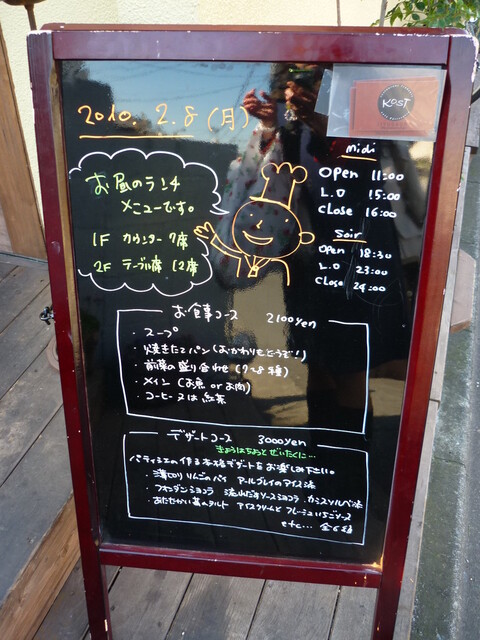 2010. 2.8 (月)
KOST
お昼のランチ
メニューです。
1F カウンター 7席
2F テーブル席 12席
midi
Open 11:00
L.O 15:00
Close 16:00
Soir
Open 18:30
L.O 23:00
Close 24:00
お食事コース 2100yen
・スープ
・焼きたてパン(おかわりもどうぞ!)
・前菜の盛り合わせ(7~8種)
・メイン(お魚 or お肉)
・コーヒー又は紅茶
デザートコース 3000yen
きょうはちょっとぜいたくに…
パティシエの作る本格デザートをお楽しみ下さい。
・薄切りりんごのパイ アールグレイのアイス添
・フォンダンショコラ 流れだすソースショコラ カシスソルベ添
・あたたかい苺のタルト アイスクリームと フレッシュいちごソース
etc… 全6種